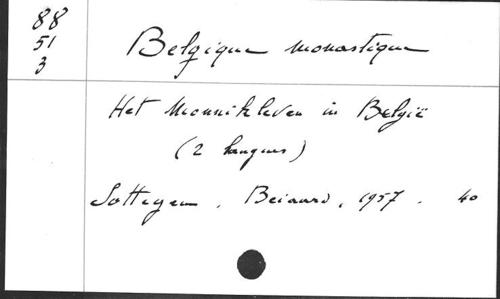 88
51
3
Belgique monastique
Het Monnikleven in België
(2 langues)
Sottegem . Beiaard , 1957 . 40